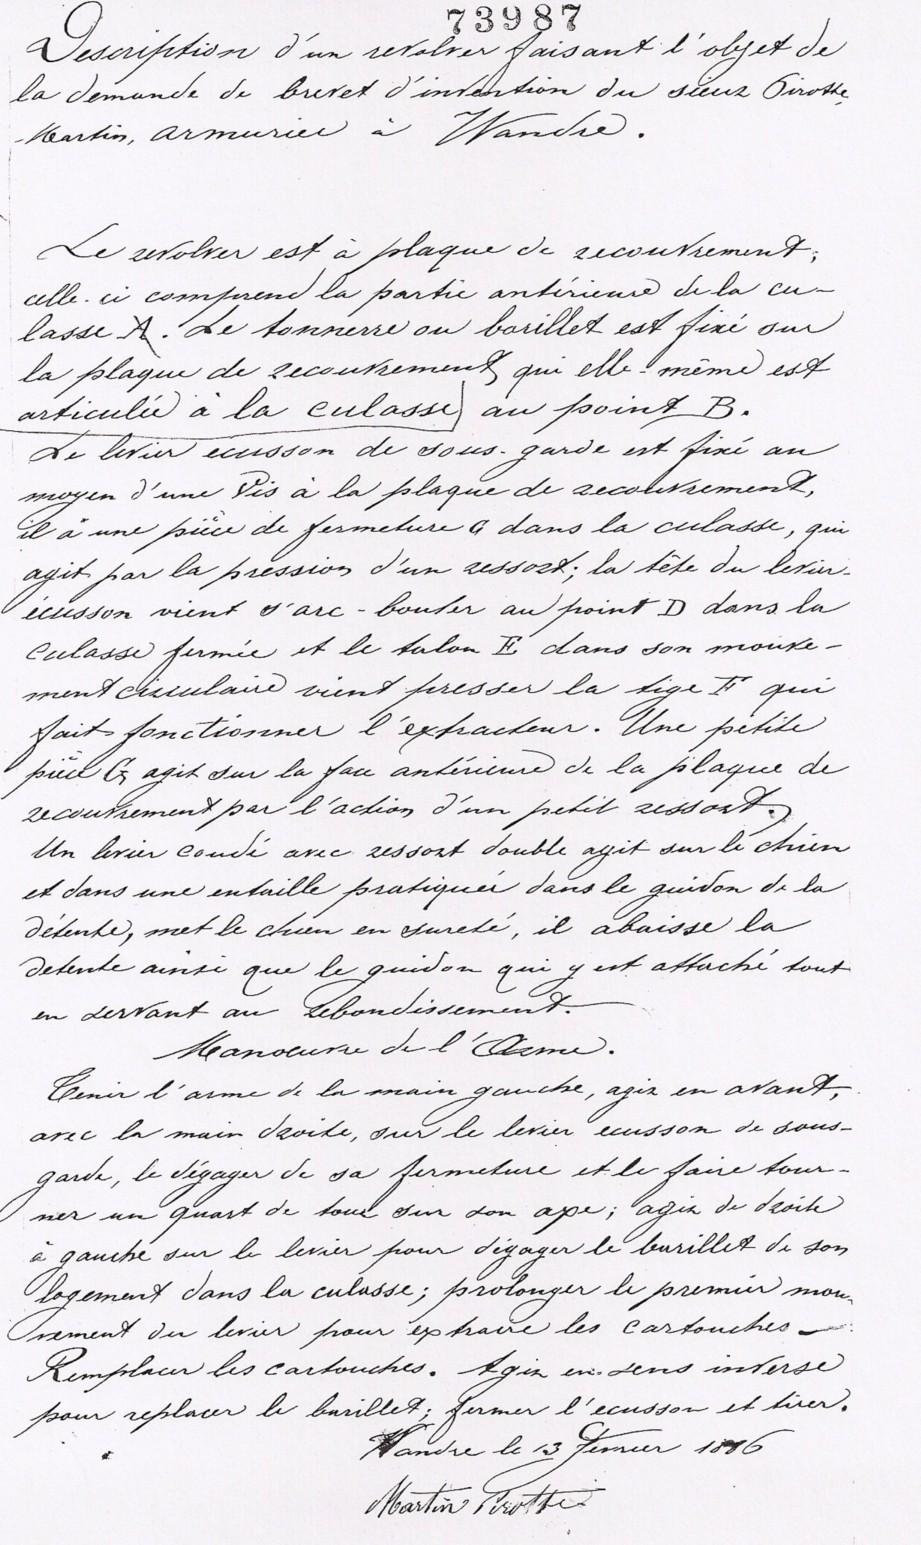 73987
Description d'un revolver faisant l'objet de
la demande de brevet d'invention du sieur Pirotte,
Martin, armurier à Wandre.
Le revolver est à plaque de recouvrement;
celle-ci comprend la partie antérieure de la cu-
lasse A. Le tonnerre ou barillet est fixé sur
la plaque de recouvrement, qui elle-même est
articulée à la culasse au point B.
Le levier ecusson de sous-garde est fixé au
moyen d'une Vis à la plaque de recouvrement,
il à une pièce de fermeture G dans la culasse, qui
agit par la pression d'un ressort; la tête du levier-
écusson vient s'arc-bouter au point D dans la
culasse fermée et le talon E dans son mouve-
ment circulaire vient presser la tige F qui
fait fonctionner l'extracteur. Une petite
pièce G agit sur la face antérieure de la plaque de
recouvrement par l'action d'un petit ressort.
Un levier coudé avec ressort double agit sur le chien
et dans une entaille pratiquée dans le guidon de la
détente, met le chien en sureté, il abaisse la
detente ainsi que le guidon qui y est attaché tout
en servant au rebondissement.
Manoeuvre de l'Arme.
Tenir l'arme de la main gauche, agir en avant,
avec la main droite, sur le levier ecusson de sous-
garde, le dégager de sa fermeture et le faire tour-
ner un quart de tour sur son axe; agir de droite
à gauche sur le levier pour dégager le barillet de son
logement dans la culasse; prolonger le premier mou-
vement du levier pour extraire les cartouches—
Remplacer les cartouches. Agir en sens inverse
pour replacer le barillet; fermer l'ecusson et tirer.
Wandre le 13 Fevrier 1886
Martin Pirotte